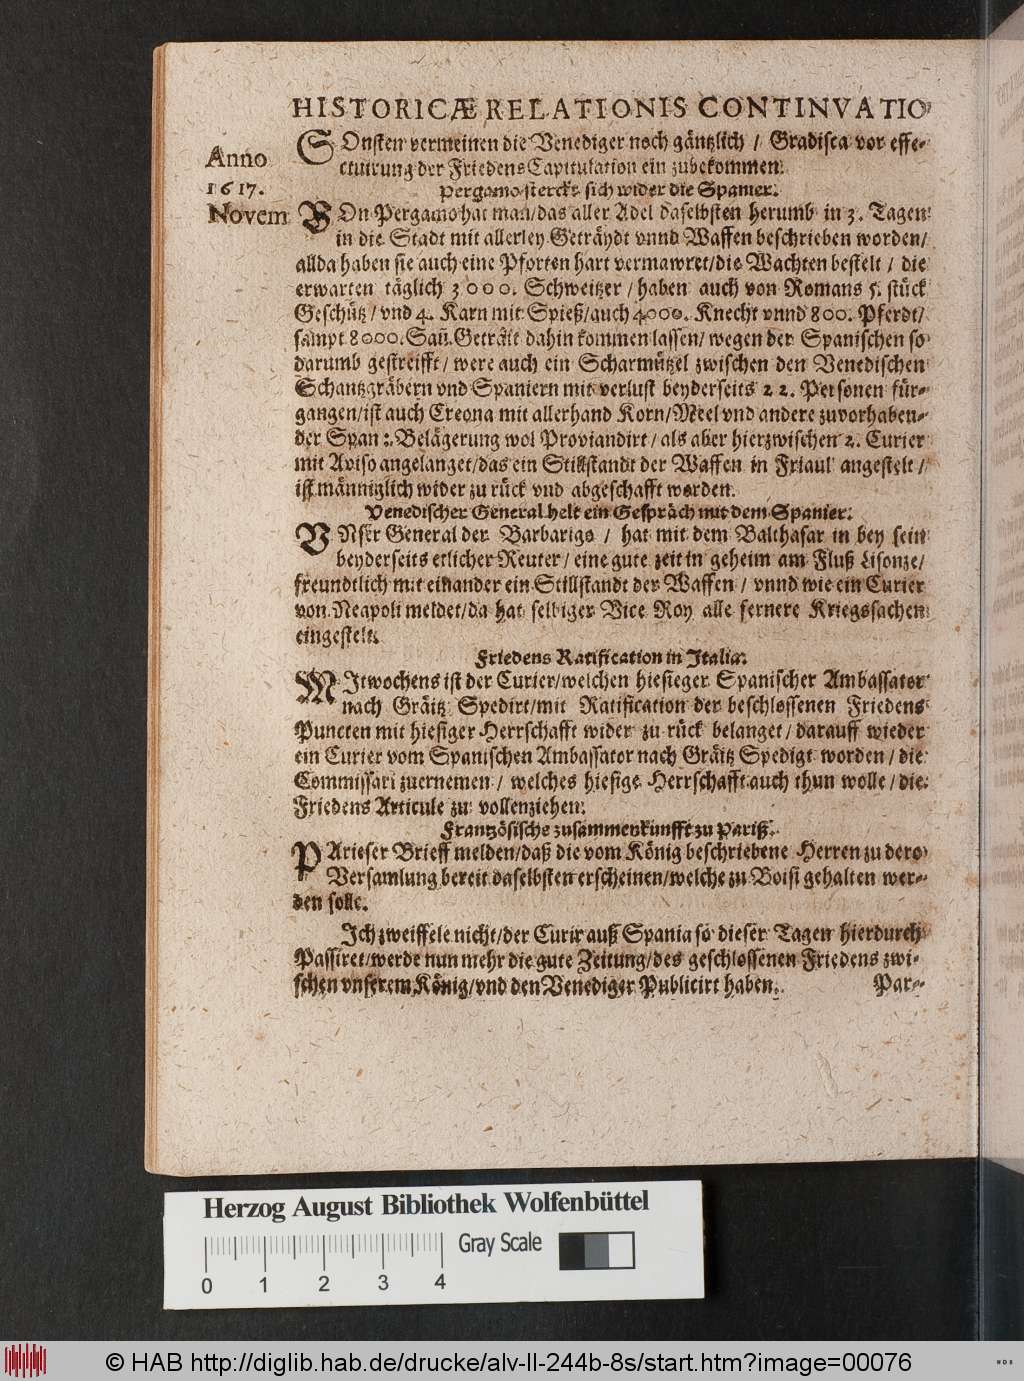 HISTORICÆ RELATIONIS CONTINVATIO
Anno
1617.
Novem
SOnsten vermeinen die Venediger noch gäntzlich / Gradisca vor effe-
ctuirung der Friedens Capitulation ein zubekommen.
Pergamo sterckt sich wider die Spanier.
VOn Pergamo hat man / das aller Adel daselbsten herumb in 3. Tagen
in die Stadt mit allerley Geträydt vnnd Waffen beschrieben worden /
allda haben sie auch eine Pforten hart vermawret / die Wachten bestelt / die
erwarten täglich 3000. Schweitzer / haben auch von Romans 5. stück
Geschütz / vnd 4. Karn mit Spieß / auch 4000. Knecht vnnd 800. Pferdt /
sampt 8000. Saũ. Geträit dahin kommen lassen / wegen der Spanischen so
darumb gestreifft / were auch ein Scharmützel zwischen den Venedischen
Schantzgräbern vnd Spaniern mit verlust beyderseits 22. Personen für-
gangen / ist auch Creona mit allerhand Korn / Meel vnd andere zuvorhaben-
der Span: Belägerung wol Proviandirt / als aber hierzwischen 2. Curier
mit Aviso angelanget / das ein Stillstandt der Waffen in Friaul angestelt /
ist männiglich wider zu rück vnd abgeschafft worden.
Venedischer General helt ein Gespräch mit dem Spanier.
VNser General der Barbarigo / hat mit dem Balthasar in bey sein
beyderseits etlicher Reuter / eine gute zeit in geheim am Fluß Lisonze /
freundtlich mit einander ein Stillstandt der Waffen / vnnd wie ein Curier
von Neapoli meldet / da hat selbiger Vice Roy alle fernere Kriegssachen
eingestelt.
Friedens Ratification in Italia.
MJtwochens ist der Curier / welchen hiesieger Spanischer Ambassator
nach Gräitz Spedirt / mit Ratification der beschlossenen Friedens
Puncten mit hiesiger Herrschafft wider zu rück belanget / darauff wieder
ein Curier vom Spanischen Ambassator nach Gräitz Spedigt worden / die
Commissari zuernemen / welches hiesige Herrschafft auch thun wolle / die
Friedens Articule zu vollenziehen.
Frantzösische zusammenkunfft zu Pariß.
PArieser Brieff melden / daß die vom König beschriebene Herren zu dero
Versamlung bereit daselbsten erscheinen / welche zu Boisi gehalten wer-
den solle.
Jch zweiffele nicht / der Curir auß Spania so dieser Tagen hierdurch
Passiret / werde nun mehr die gute Zeitung / des geschlossenen Friedens zwi-
schen vnserem König / vnd den Venediger Publicirt haben.
Par-
Herzog August Bibliothek Wolfenbüttel
Gray Scale
0 1 2 3 4
© HAB http://diglib.hab.de/drucke/alv-ll-244b-8s/start.htm?image=00076